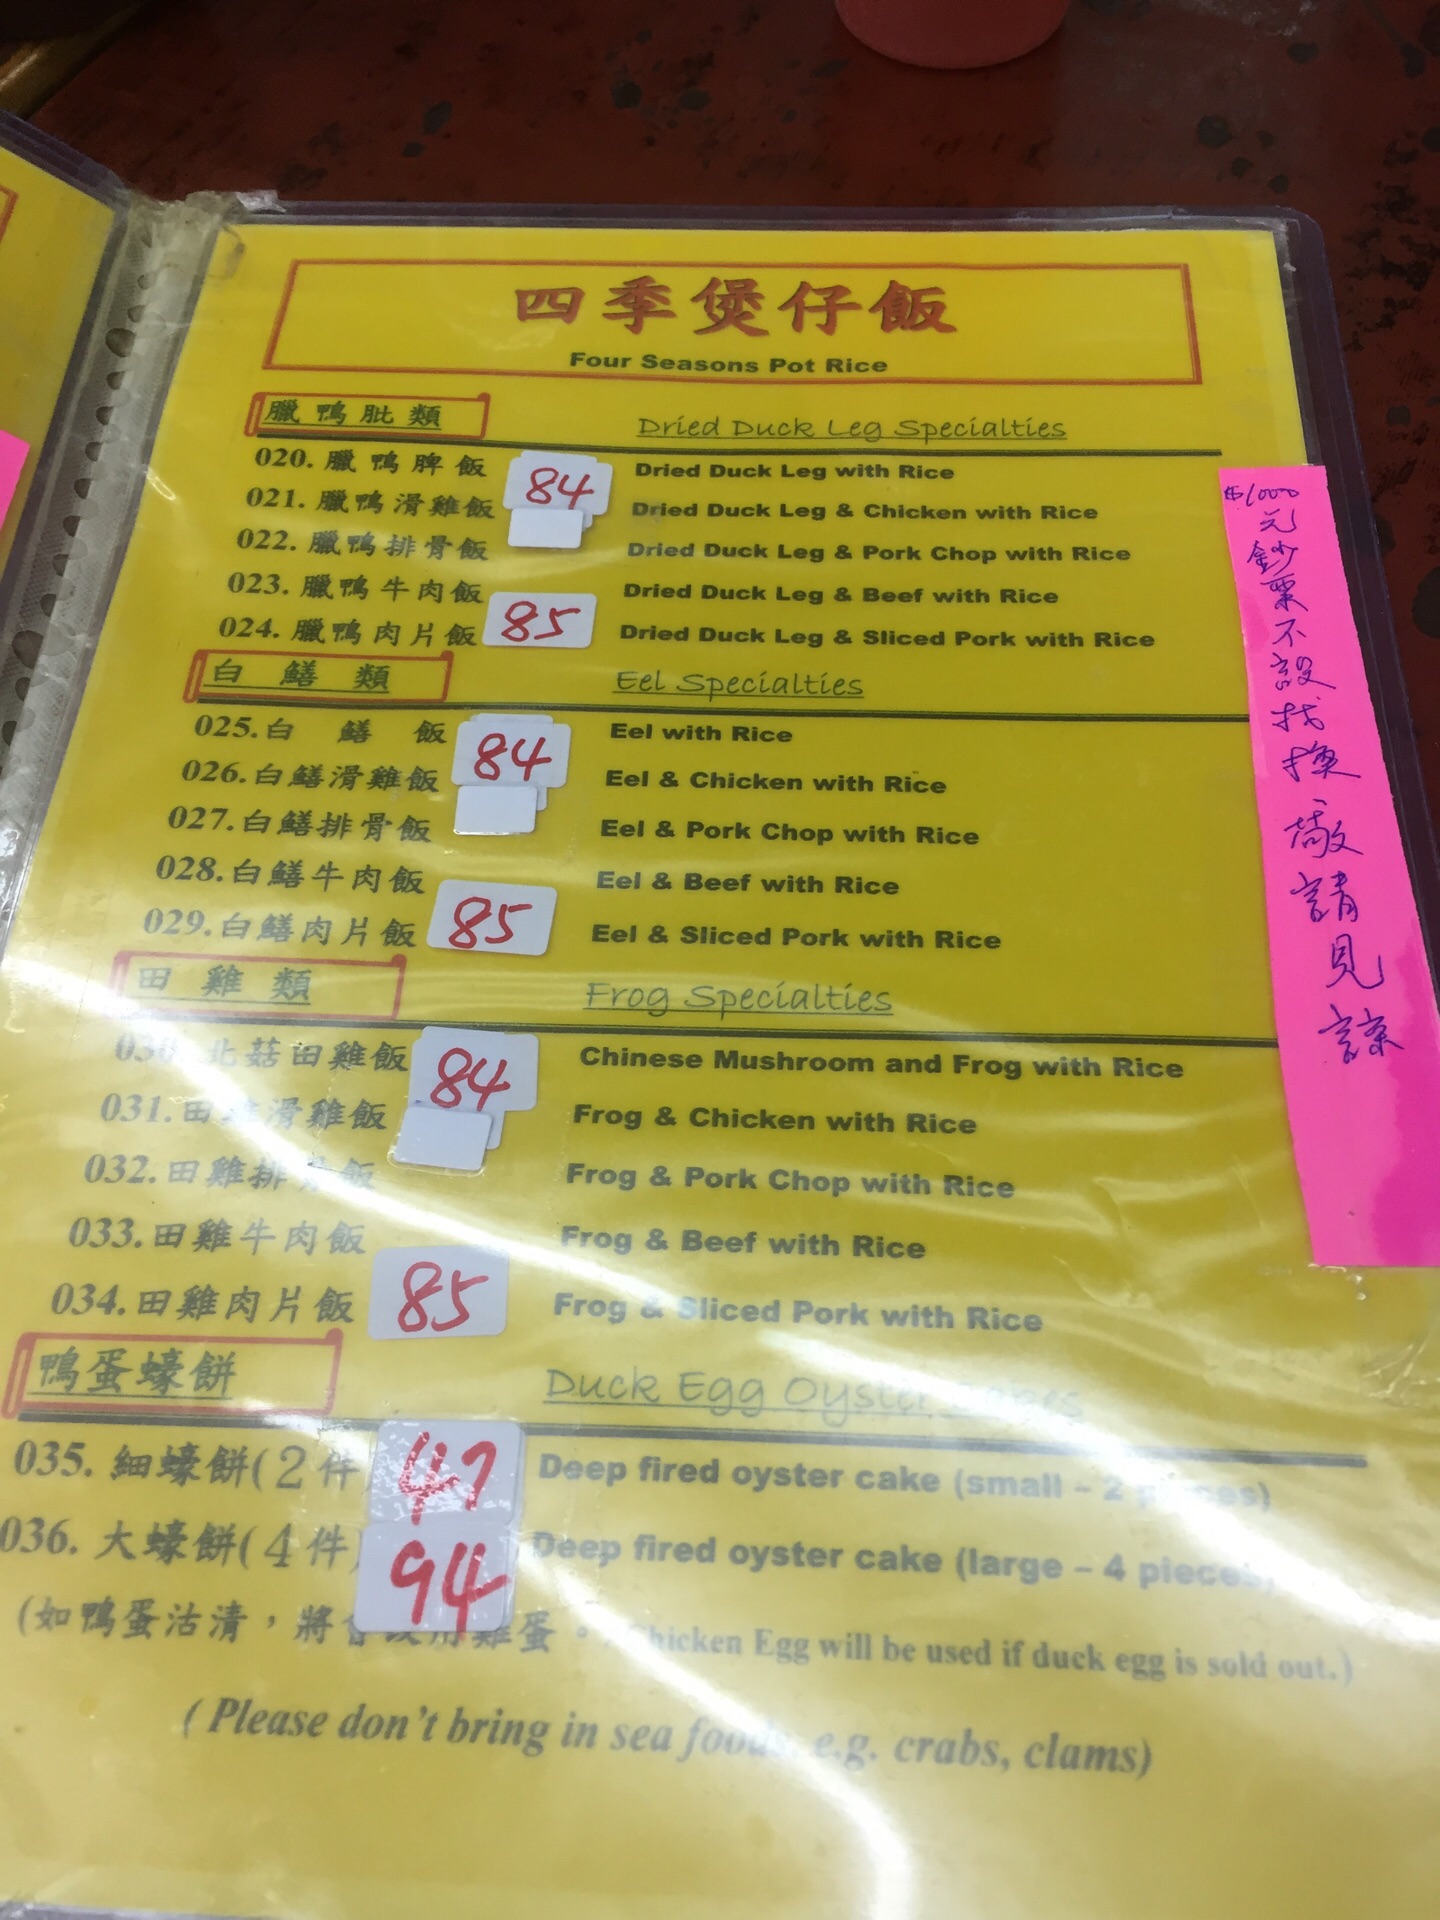 四季煲仔飯
Four Seasons Pot Rice
臘鴨肶類 Dried Duck Leg Specialties
020. 臘鴨脾飯 84 Dried Duck Leg with Rice
021. 臘鴨滑雞飯 Dried Duck Leg & Chicken with Rice
022. 臘鴨排骨飯 Dried Duck Leg & Pork Chop with Rice
023. 臘鴨牛肉飯 Dried Duck Leg & Beef with Rice
024. 臘鴨肉片飯 85 Dried Duck Leg & Sliced Pork with Rice
白鱔類 Eel Specialties
025. 白鱔飯 84 Eel with Rice
026. 白鱔滑雞飯 Eel & Chicken with Rice
027. 白鱔排骨飯 Eel & Pork Chop with Rice
028. 白鱔牛肉飯 Eel & Beef with Rice
029. 白鱔肉片飯 85 Eel & Sliced Pork with Rice
田雞類 Frog Specialties
030. 北菇田雞飯 84 Chinese Mushroom and Frog with Rice
031. 田雞滑雞飯 Frog & Chicken with Rice
032. 田雞排骨飯 Frog & Pork Chop with Rice
033. 田雞牛肉飯 Frog & Beef with Rice
034. 田雞肉片飯 85 Frog & Sliced Pork with Rice
鴨蛋蠔餅 Duck Egg Oyster Cakes
035. 細蠔餅(2件) 47 Deep fired oyster cake (small – 2 pieces)
036. 大蠔餅(4件) 94 Deep fired oyster cake (large – 4 pieces)
(如鴨蛋沽清，將會改用雞蛋。Chicken Egg will be used if duck egg is sold out.)
( Please don't bring in sea foods, e.g. crabs, clams)
$1000元鈔票不設找換敬請見諒